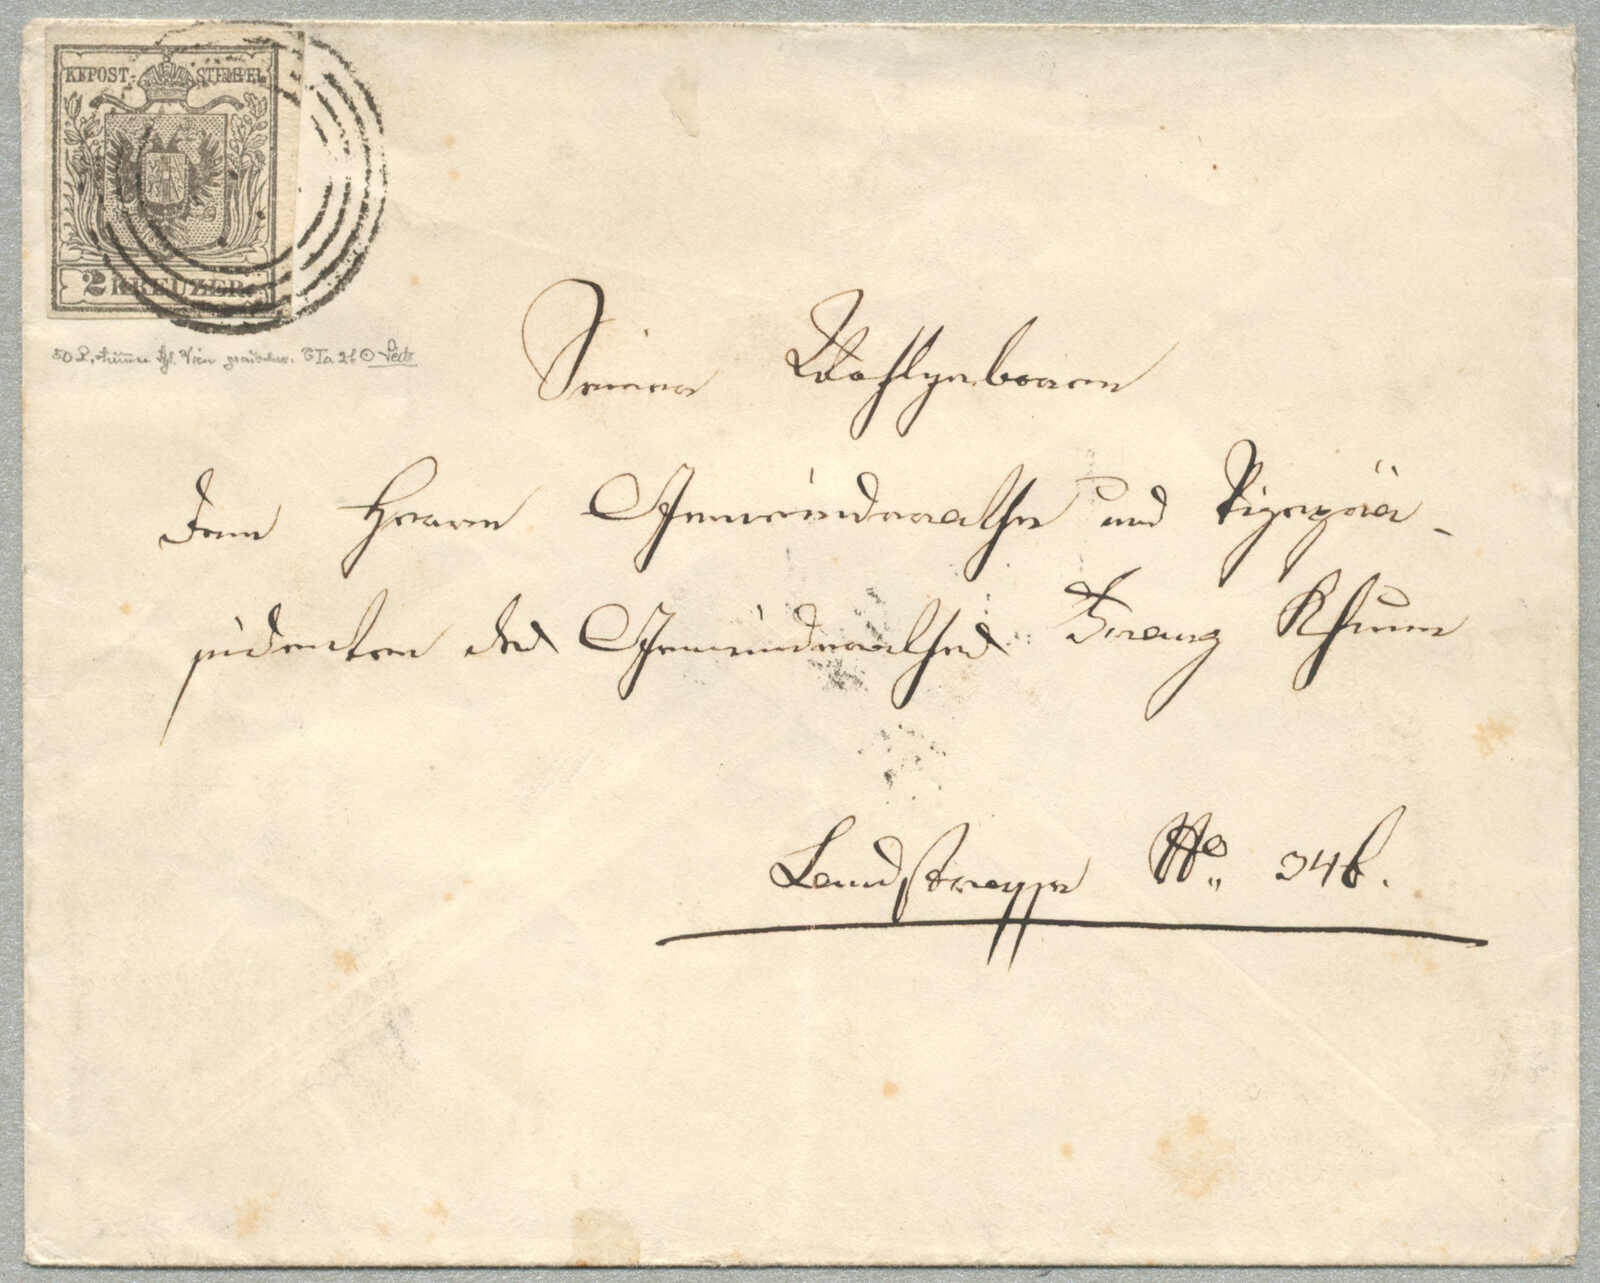 KKPOST-STEMPEL
2 KREUZER
Seiner Wohlgeboren
dem Herrn Gemeinderathe und Vizeprä-
sidenten des Gemeinderathes Franz Khunn
Landstrasse No. 346.